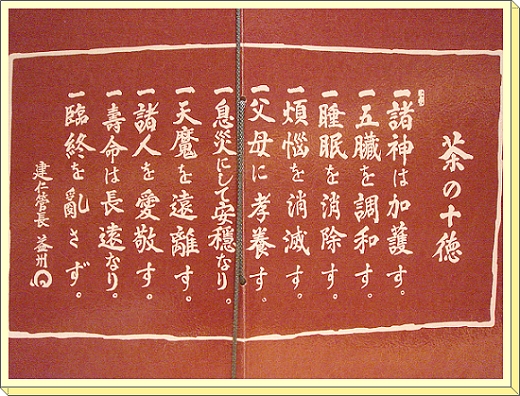 茶の十徳
一諸神は加護す。
一五臓を調和す。
一睡眠を消除す。
一煩悩を消滅す。
一父母に孝養す。
一息災にして安穏なり。
一天魔を遠離す。
一諸人を愛敬す。
一壽命は長遠なり。
一臨終を亂さず。
建仁管長 益州